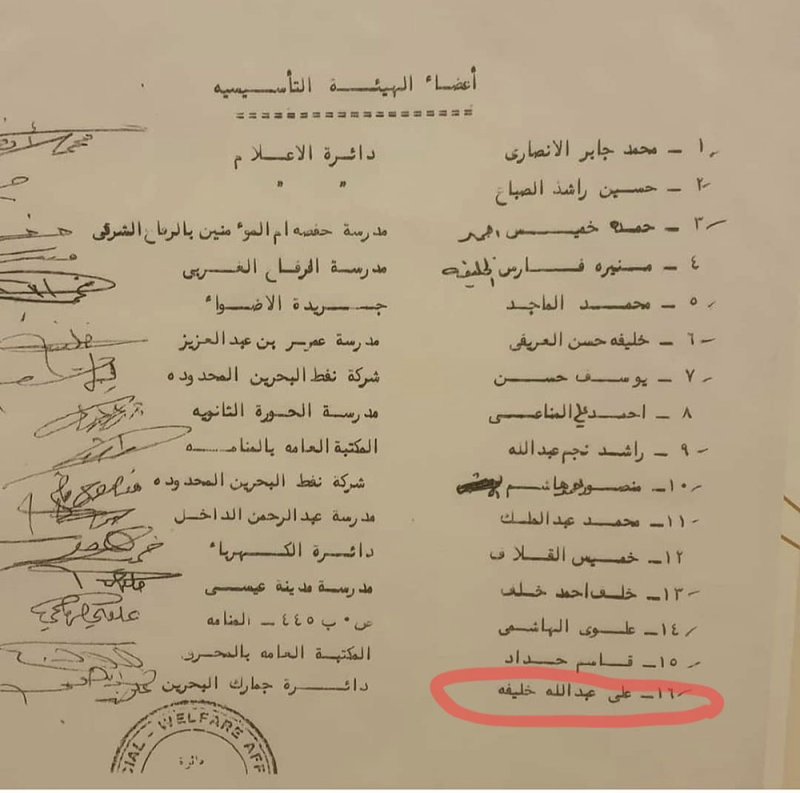 أعضاء الهيئة التأسيسيه
١ – محمد جابر الانصارى دائرة الاعلام
٢ – حسين راشد الصباغ " "
٣ – حمده خميس مدرسة حفصه ام الموءمنين بالرفاع الشرقى
٤ – منيره فارس الخليفه مدرسة الرفاع الغربى
٥ – محمد الماجد جريدة الاضواء
٦ – خليفه حسن العريفى مدرسة عمر بن عبد العزيز
٧ – يوسف حسن شركة نفط البحرين المحدوده
٨ – احمد علي المناعى مدرسة الحورة الثانويه
٩ – راشد نجم عبدالله المكتبة العامه بالمنامه
١٠ – منصور هاشم شركة نفط البحرين المحدوده
١١ – محمد عبد الملك مدرسة عبد الرحمن الداخل
١٢ – خميس القلاف دائرة الكهرباء
١٣ – خلف احمد خلف مدرسة مدينة عيسى
١٤ – علوى الهاشمى ص٠ب ٤٤٥ – المنامه
١٥ – قاسم حداد المكتبة العامه بالمحرق
١٦ – على عبدالله خليفه دائرة جمارك البحرين
CIAL - WELFARE AFF
دائرة